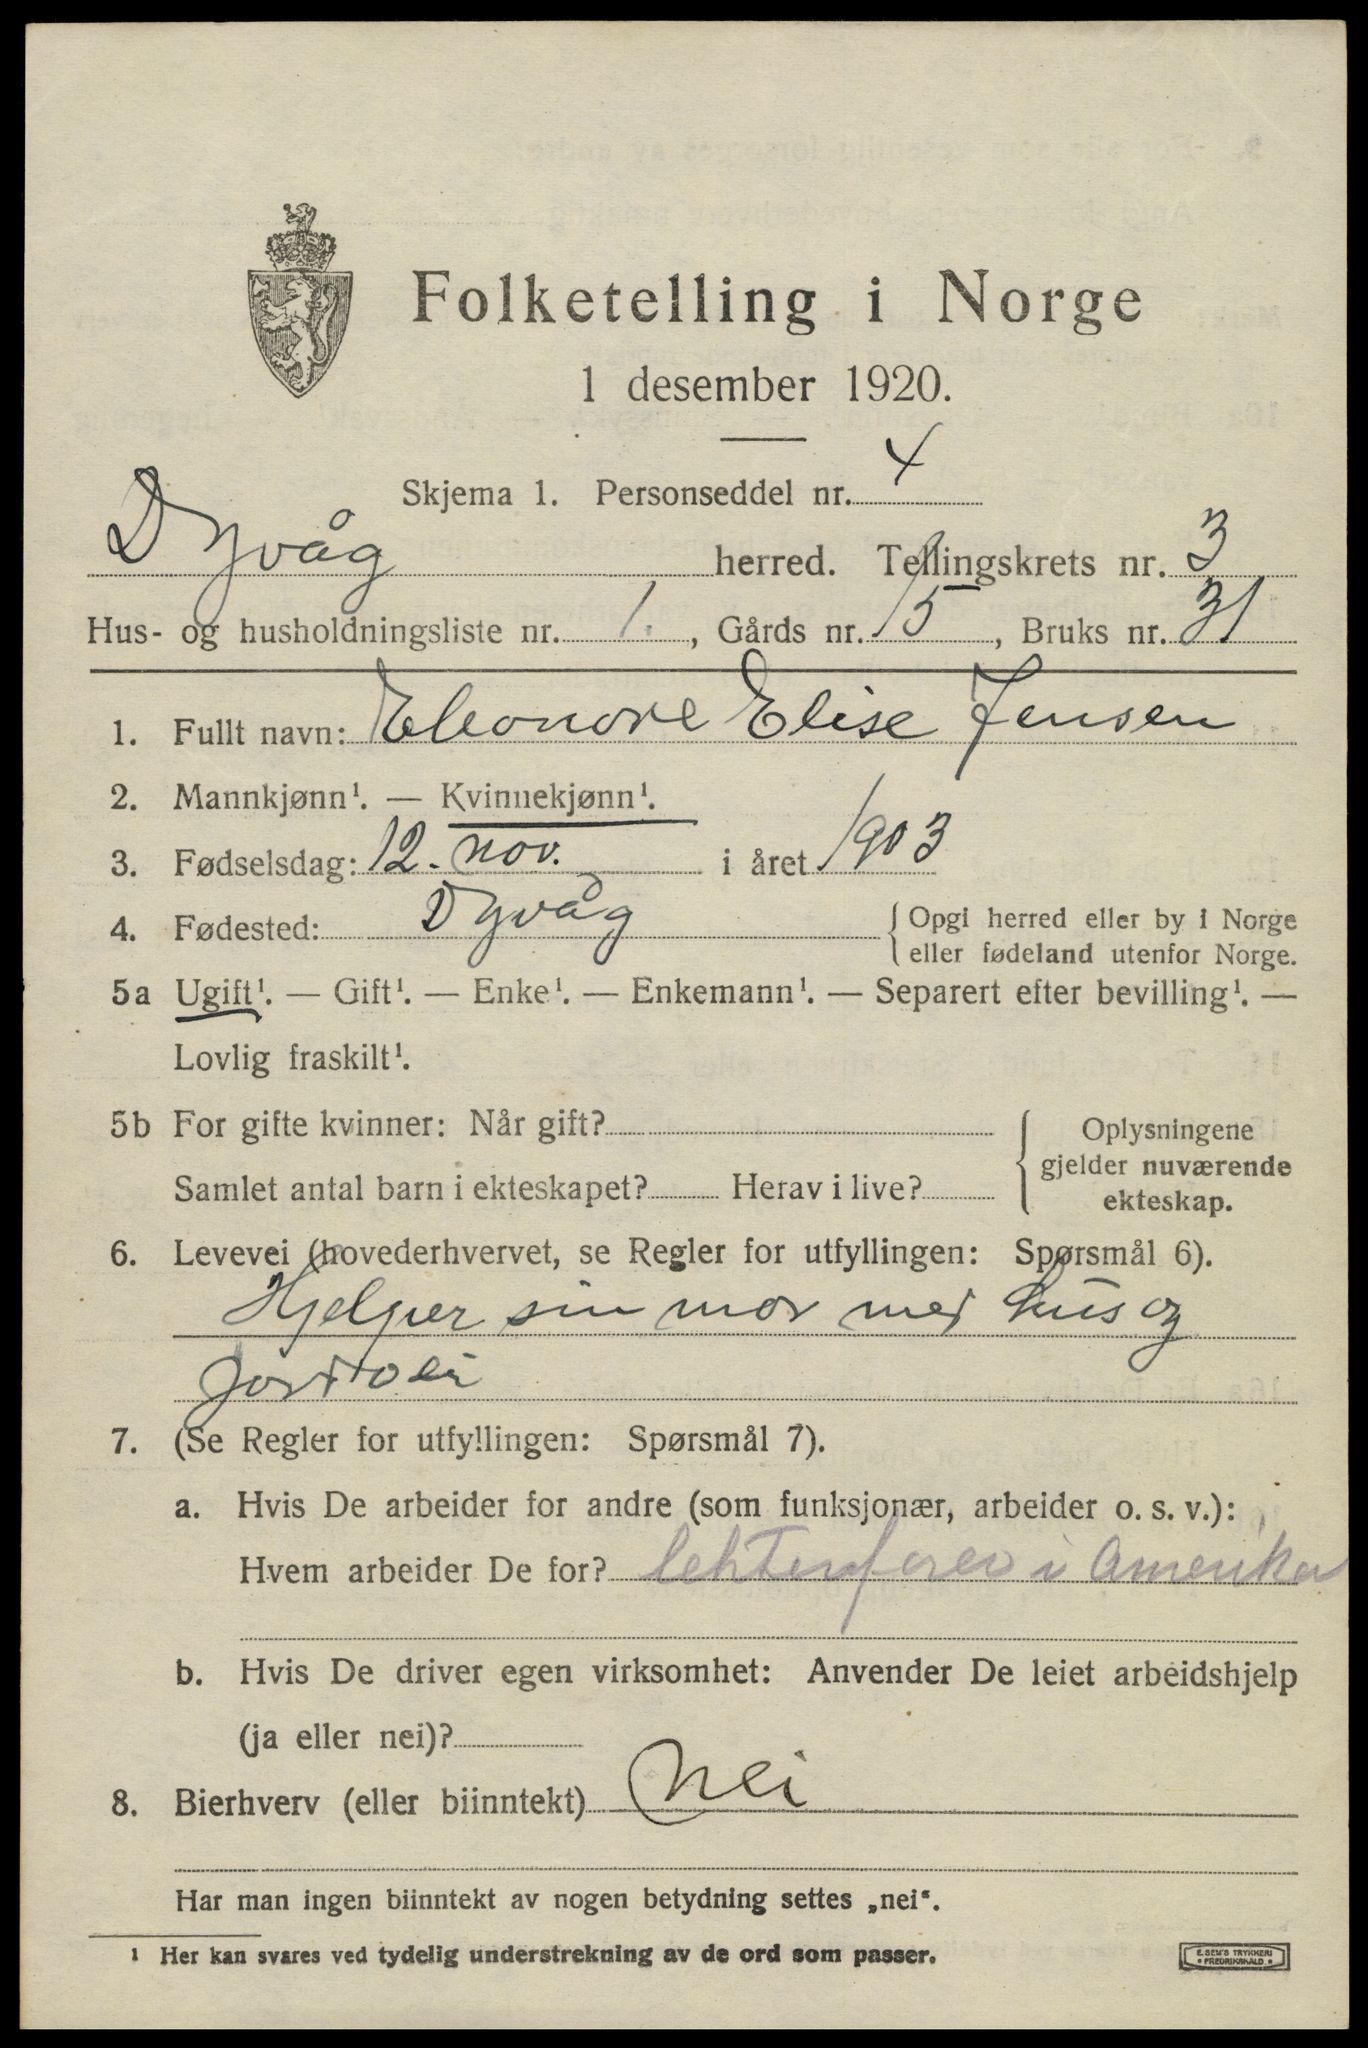 Folketelling i Norge
1 desember 1920.
Skjema 1. Personseddel nr. 4
Dyvåg herred. Tellingskrets nr. 3
Hus- og husholdningsliste nr. 1. , Gårds nr. 15 , Bruks nr. 31
1. Fullt navn: Eleonore Elise Jensen
2. Mannkjønn¹. — Kvinnekjønn¹.
3. Fødselsdag: 12. nov. i året 1903
4. Fødested: Dyvåg { Opgi herred eller by i Norge
eller fødeland utenfor Norge.
5a Ugift¹. — Gift¹. — Enke¹. — Enkemann¹. — Separert efter bevilling¹. —
Lovlig fraskilt¹.
5b For gifte kvinner: Når gift?
Samlet antal barn i ekteskapet? Herav i live?
{ Oplysningene
gjelder nuværende
ekteskap.
6. Levevei (hovederhvervet, se Regler for utfyllingen: Spørsmål 6).
Hjelper sin mor med hus og
jord
7. (Se Regler for utfyllingen: Spørsmål 7).
a. Hvis De arbeider for andre (som funksjonær, arbeider o. s. v.):
Hvem arbeider De for? i Amerika
b. Hvis De driver egen virksomhet: Anvender De leiet arbeidshjelp
(ja eller nei)?
8. Bierhverv (eller biinntekt) Nei
Har man ingen biinntekt av nogen betydning settes „nei“.
¹ Her kan svares ved tydelig understrekning av de ord som passer.
E. SEM'S TRYKKERI
* FREDRIKSHALD *